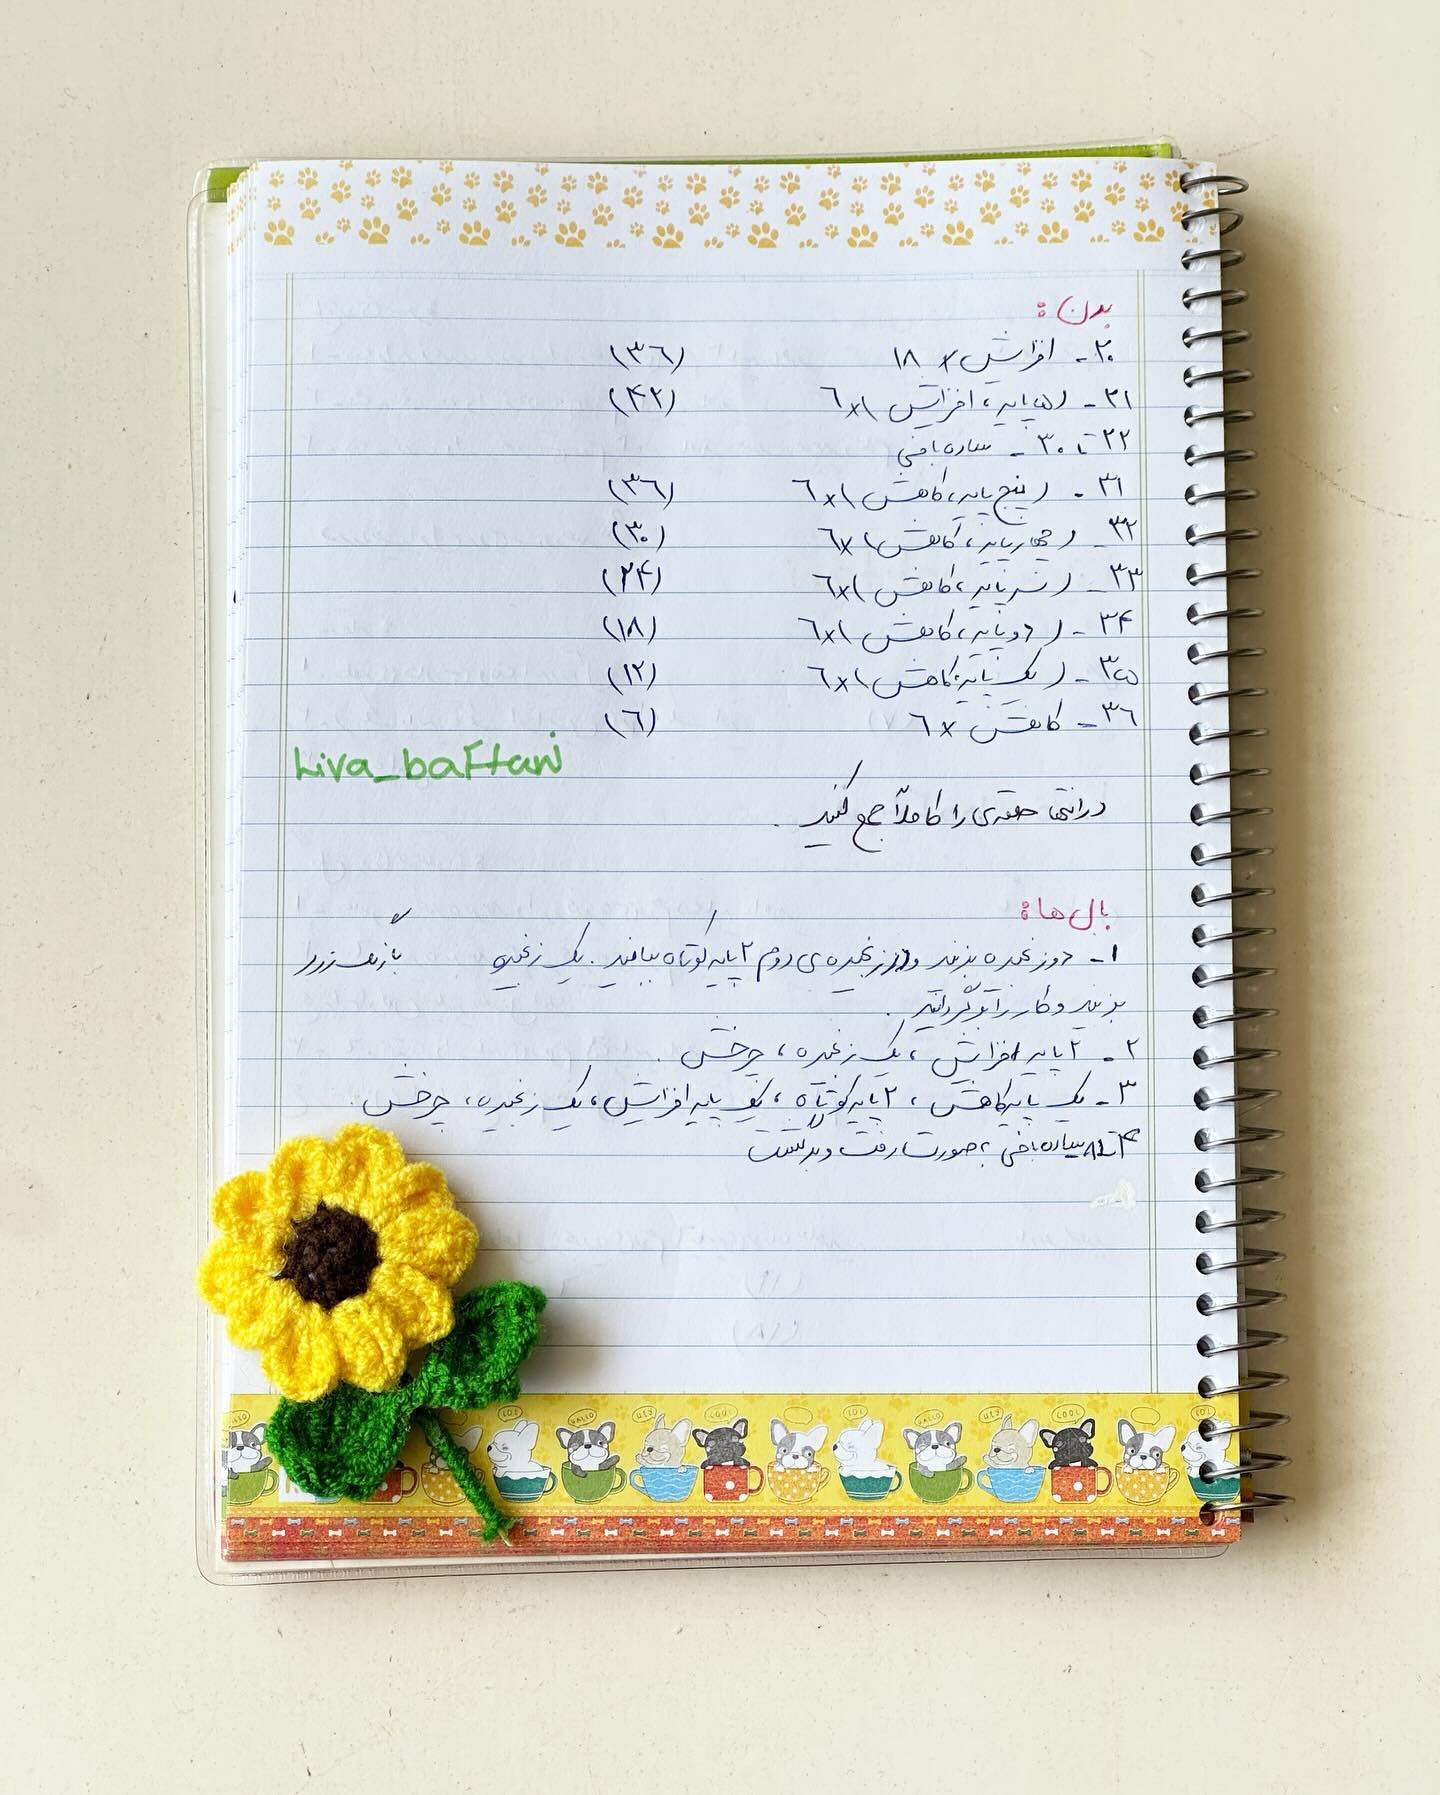 بدن:
۲۰- افزایش × ۱۸ (۳۶)
۲۱- (۵ پایه، افزایش) × ۶ (۴۲)
۲۲ تا ۳۰- ساده بافی
۳۱- (پنج پایه، کاهش) × ۶ (۳۶)
۳۲- (چهار پایه، کاهش) × ۶ (۳۰)
۳۳- (سه پایه، کاهش) × ۶ (۲۴)
۳۴- (دو پایه، کاهش) × ۶ (۱۸)
۳۵- (یک پایه، کاهش) × ۶ (۱۲)
۳۶- کاهش × ۶ (۶)
Liva_baftani
در انتها حلقه‌ی را کاملاً جمع کنید.
بال ها:
۱- دو زنجیره بزنید و در زنجیره‌ی دوم ۲ پایه کوتاه ببافید. یک زنجیره با رنگ زرد
بزنید و کار را برگردانید.
۲- ۲ پایه افزایش، یک زنجیره، چرخش.
۳- یک پایه کاهش، ۲ پایه کوتاه، یک پایه افزایش، یک زنجیره، چرخش.
۴ تا ۸ ساده بافی بصورت رفت و برگشت
HALLO
LOL
HALLO
HEY
COOL
LOL
HALLO
HEY
COOL
LOL